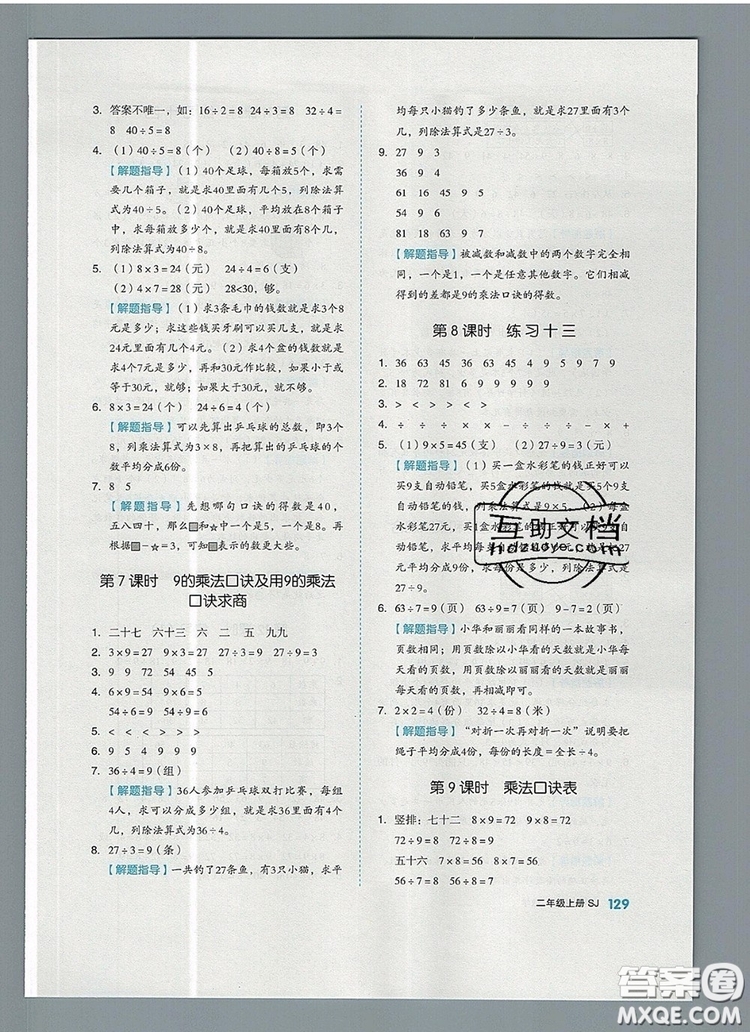 3. 答案不唯一，如：16÷2=8 24÷3=8 32÷4=
8 40÷5=8
4. （1）40÷5=8（个）（2）40÷8=5（个）
【解题指导】（1）40个足球，每箱放5个，求需
要几个箱子，就是求40里面有几个5，列除法算
式为40÷5。（2）40个足球，平均放在8个箱子
中，求每箱放多少个，就是求40里面有几个8，
列除法算式为40÷8。
5. （1）8×3=24（元） 24÷4=6（支）
（2）4×7=28（元） 28<30，够。
【解题指导】（1）求3条毛巾的钱数就是求3个8
元是多少；求这些钱买牙刷可以买几支，就是求
24元里面有几个4元。（2）求4个盒的钱数就是
求4个7元是多少，再和30元作比较，如果小于或
等于30元，就够；如果大于30元，就不够。
6. 8×3=24（个） 24÷6=4（个）
【解题指导】可以先算出乒乓球的总数，即3个
8，列乘法算式为3×8，再把算出的乒乓球的个
数平均分成6份。
7. 8 5
【解题指导】先想哪句口诀的得数是40，
五八四十，那么■和★中一个是8，一个是5。
再根据■-★=3，可知■表示的数更大些。
第7课时 9的乘法口诀及用9的乘法
口诀求商
1. 二十七 六十三 六 二 五 九九
2. 3×9=27 9×3=27 27÷9=3 27÷3=9
3. 9 9 72 54 45 5
4. 6×9=54 9×6=54
54÷6=9 54÷9=6
5. < < < < > <
6. 9 5 4 9 9 9
7. 36÷4=9（组）
【解题指导】36人参加乒乓球双打比赛，每组
4人，求可以分成多少组，就是求36里面有几个
4，列除法算式为36÷4。
8. 27÷3=9（条）
【解题指导】一共钓了27条鱼，有3只小猫，求平
均每只小猫钓了多少条鱼，就是求27里面有3个
几，列除法算式是27÷3。
9. 27 9 3
36 9 4
61 16 45 9 5
54 9 6
81 18 63 9 7
【解题指导】被减数和减数中的两个数字完全相
同，一个是1，一个是任意其他数字。它们相减
得到的差都是9的乘法口诀的得数。
第8课时 练习十三
1. 36 63 45 36 63 45 4 9 5 9 7 9
2. 18 72 81 6 9 9 9 9 9
3. > < > > < >
4. ÷ ÷ ÷ × ÷ ÷ × - +
5. （1）9×5=45（支）（2）27÷9=3（元）
【解题指导】（1）买一盒水彩笔的钱正好可以
买9支自动铅笔，买5盒水彩笔的钱可以买5个9
支自动铅笔，列乘法算式为9×5。（2）每盒
水彩笔27元，买1盒水彩笔的钱正好可以买9支
自动铅笔，求平均每支自动铅笔多少元，就是
求27里面有9个几，列除法算式为27÷9。
6. 63÷7=9（页） 63÷9=7（页） 9-7=2（页）
【解题指导】小华和丽丽看同样的一本故事书，
页数相同；用页数除以小华看的天数就是小华每
天看的页数，页数除以丽丽看的天数就是丽丽
每天看的页数，再相减即可。
7. 2×2=4（份） 32÷4=8（米）
【解题指导】“对折一次再对折一次”说明要把
绳子平均分成4份，每份的长度=全长÷4。
第9课时 乘法口诀表
1. 竖排：七十二 8×9=72 9×8=72
72÷9=8 72÷8=9
五十六 7×8=56 8×7=56
56÷7=8 56÷8=7
二年级上册 SJ 129
互助文档
hdzuoye.com
答案圈
MXQE.COM